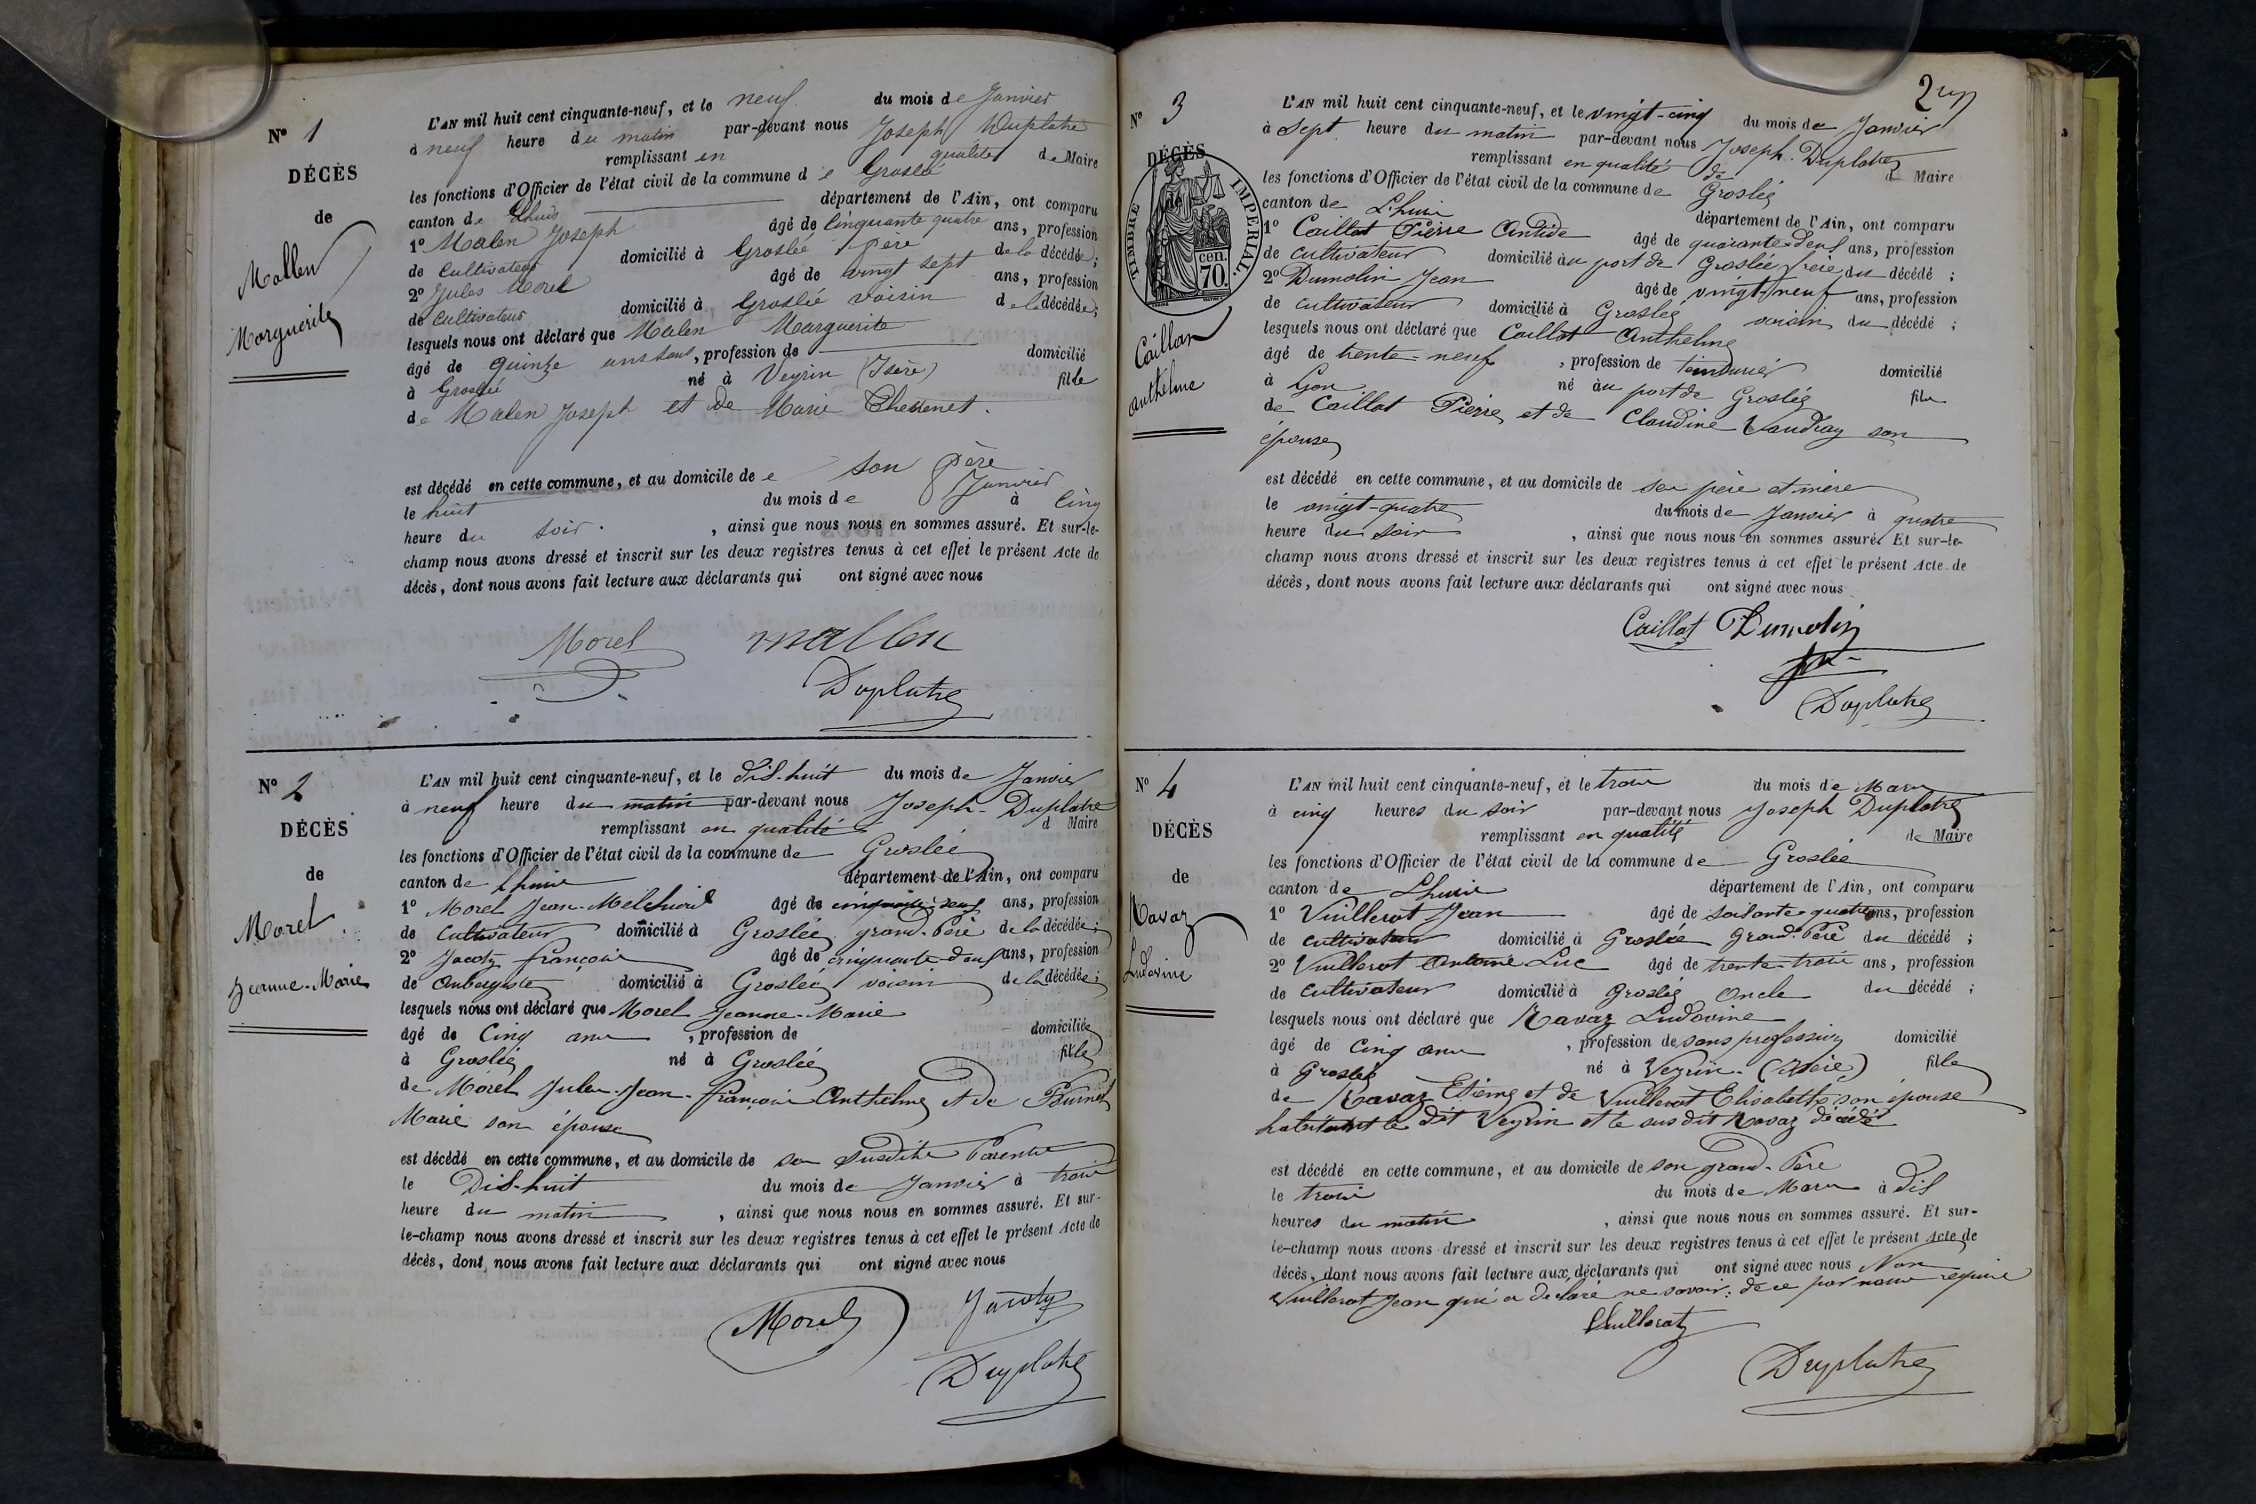 N° 1
DÉCÈS
de
Mallen
Marguerite
L'AN mil huit cent cinquante-neuf, et le neuf du mois de Janvier
à neuf heure du matin par-devant nous Joseph Duplatre
remplissant en qualité de Maire
les fonctions d'Officier de l'état civil de la commune de Groslée
canton de Lhuis département de l'Ain, ont comparu
1° Malen Joseph âgé de Cinquante quatre ans, profession
de Cultivateur domicilié à Groslée père de la décédée;
2° Jules Morel âgé de vingt sept ans, profession
de Cultivateur domicilié à Groslée voisin de la décédée;
lesquels nous ont déclaré que Malen Marguerite
âgé de quinze ans, profession de domicilié
à Groslée né à Veyrin (Isère) fille
de Malen Joseph et de Marie
est décédé en cette commune, et au domicile de son père
le huit du mois de Janvier à Cinq
heure du soir, ainsi que nous nous en sommes assuré. Et sur-le-
champ nous avons dressé et inscrit sur les deux registres tenus à cet effet le présent Acte de
décès, dont nous avons fait lecture aux déclarants qui ont signé avec nous
Morel mallen
Duplatre
N° 2
DÉCÈS
de
Morel
Jeanne-Marie
L'AN mil huit cent cinquante-neuf, et le dix-huit du mois de Janvier
à neuf heure du matin par-devant nous Joseph Duplatre
remplissant en qualité d Maire
les fonctions d'Officier de l'état civil de la commune de Groslée
canton de Lhuis département de l'Ain, ont comparu
1° Morel Jean-Melchior âgé de ans, profession
de Cultivateur domicilié à Groslée grand-Père de la décédée;
2° Jacoty françois âgé de cinquante-deux ans, profession
de Aubergiste domicilié à Groslée voisin de la décédée;
lesquels nous ont déclaré que Morel Jeanne-Marie
âgé de Cinq ans, profession de domiciliée
à Groslée né à Groslée fille
de Morel Jules-Jean-françois Anthelme et de Burnet
Marie son épouse
est décédé en cette commune, et au domicile de ses susdits Parents
le Dix-huit du mois de Janvier à trois
heure du matin, ainsi que nous nous en sommes assuré. Et sur-
le-champ nous avons dressé et inscrit sur les deux registres tenus à cet effet le présent Acte de
décès, dont nous avons fait lecture aux déclarants qui ont signé avec nous
Morel Jacoty
Duplatre
N° 3
DÉCÈS
de
TIMBRE IMPÉRIAL
70 cen.
Caillat
Anthelme
L'AN mil huit cent cinquante-neuf, et le vingt-cinq du mois de Janvier
à Sept heure du matin par-devant nous Joseph Duplatre
remplissant en qualité de Maire
les fonctions d'Officier de l'état civil de la commune de Groslée
canton de Lhuis département de l'Ain, ont comparu
1° Caillat Pierre Antide âgé de quarante-deux ans, profession
de Cultivateur domicilié au port de Groslée frère du décédé;
2° Dumolin Jean âgé de vingt-neuf ans, profession
de cultivateur domicilié à Groslée voisin du décédé;
lesquels nous ont déclaré que Caillat Anthelme
âgé de trente-neuf, profession de teinturier domicilié
à Lyon né au port de Groslée fils
de Caillat Pierre et de Claudine Vaudray son
épouse
est décédé en cette commune, et au domicile de ses père et mère
le vingt-quatre du mois de Janvier à quatre
heure du soir, ainsi que nous nous en sommes assuré. Et sur-le-
champ nous avons dressé et inscrit sur les deux registres tenus à cet effet le présent Acte de
décès, dont nous avons fait lecture aux déclarants qui ont signé avec nous
Caillat Dumolin
Duplatre
N° 4
DÉCÈS
de
Ravaz
Ludovine
L'AN mil huit cent cinquante-neuf, et le trois du mois de Mars
à cinq heures du soir par-devant nous Joseph Duplatre
remplissant en qualité de Maire
les fonctions d'Officier de l'état civil de la commune de Groslée
canton de Lhuis département de l'Ain, ont comparu
1° Vuillerot Jean âgé de soixante-quatre ans, profession
de cultivateur domicilié à Groslée Grand-Père du décédé;
2° Vuillerot Antoine Luc âgé de trente-trois ans, profession
de Cultivateur domicilié à Groslée Oncle du décédé;
lesquels nous ont déclaré que Ravaz Ludovine
âgé de Cinq ans, profession de sans profession domicilié
à Groslée né à Veyrin (Isère) fille
de Ravaz Etienne et de Vuillerot Elisabeth son épouse
habitant le dit Veyrin et le susdit Ravaz décédé
est décédé en cette commune, et au domicile de son grand-Père
le trois du mois de Mars à dix
heures du matin, ainsi que nous nous en sommes assuré. Et sur-
le-champ nous avons dressé et inscrit sur les deux registres tenus à cet effet le présent Acte de
décès, dont nous avons fait lecture aux déclarants qui ont signé avec nous Non
Vuillerot Jean qui a déclaré ne savoir; de ce par nous requis
Vuillerot
Duplatre